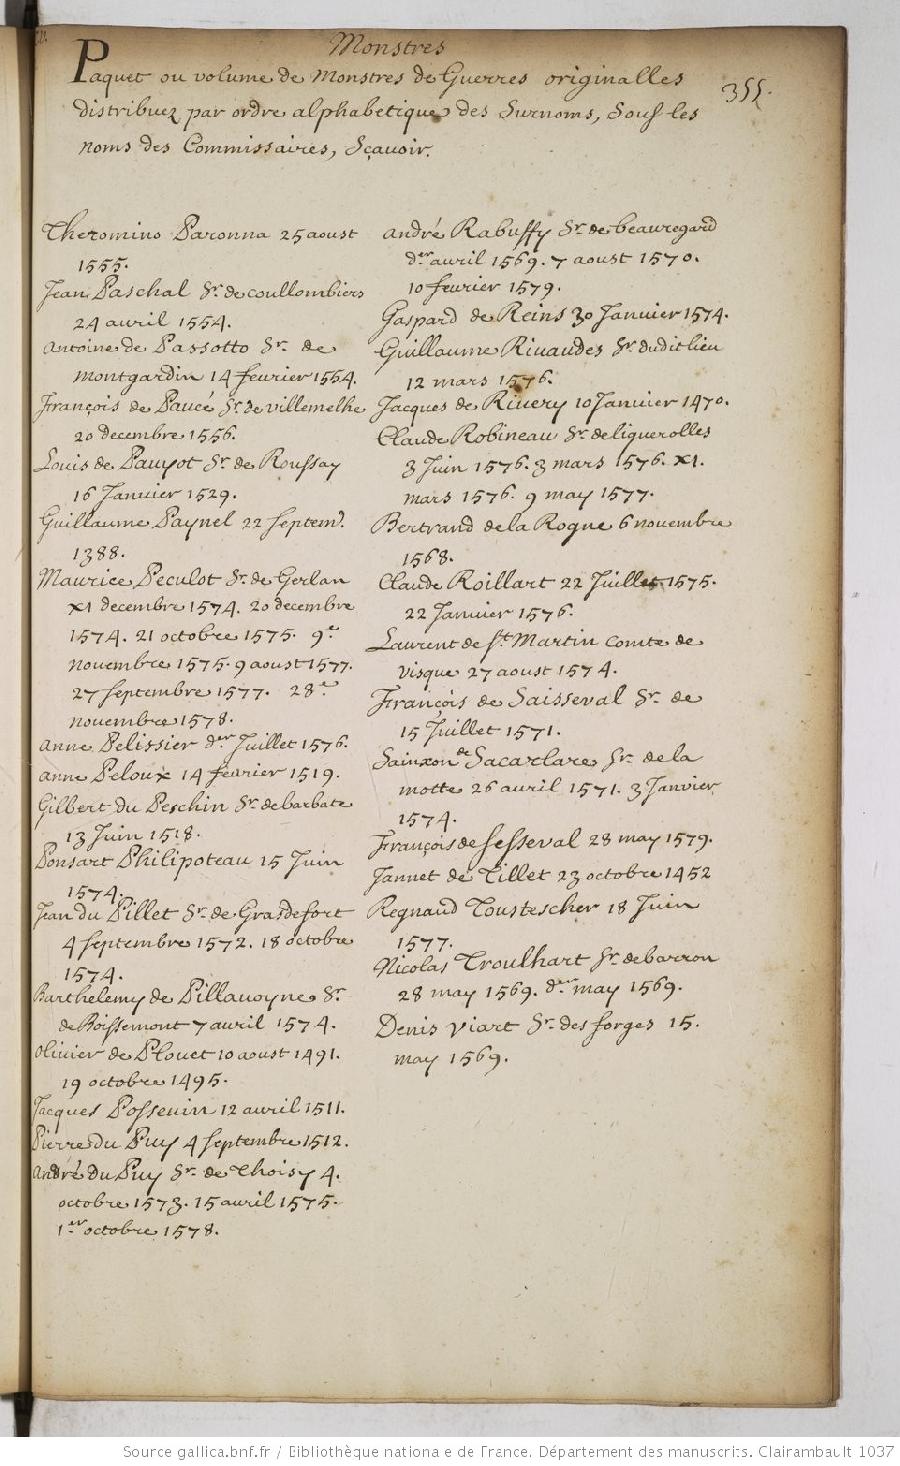 Monstres
Paquet ou volume de Monstres de Guerres originalles
distribuez par ordre alphabetique des Surnoms, Sous les
noms des Commissaires, Sçavoir.
355.
Theromino Paronna 25 aoust
1555.
Jean Paschal Sr. de coullombiers
24 avril 1554.
Antoine de Passotto Sr. de
montgardin 14 feurier 1554.
François de Paucé Sr. de villemelhe
20 decembre 1556.
Louis de Pauyot Sr. de Roussay
16 Januier 1529.
Guillaume Paynel 22 Septemr.
1388.
Maurice Peculot Sr. de Gerlan
XI decembre 1574. 20 decembre
1574. 21 octobre 1575. 9e
nouembre 1575. 9 aoust 1577.
27 septembre 1577. 28e
nouembre 1578.
anne Pelissier der Juillet 1576.
anne Peloux 14 feurier 1519.
Gilbert du Peschin Sr. de barbate
13 Juin 1518.
Ponsart Philipoteau 15 Juin
1574.
Jean du Pillet Sr. de Grasdefort
4 septembre 1572. 18 octobre
1574.
Barthelemy de Pillauoyne Sr.
de Boissemont 7 avril 1574.
Oliuier de Plouet 10 aoust 1491.
19 octobre 1495.
Jacques Posseuin 12 avril 1511.
Pierre du Puy 4 septembre 1512.
André du Puy Sr. de Thoisy 4.
octobre 1573. 15 avril 1575.
1er octobre 1578.
André Rabuffy Sr. de beauregard
der avril 1569. 7 aoust 1570.
10 feurier 1579.
Gaspard de Reins 30 Januier 1574.
Guillaume Riuaudes Sr. dudit lieu
12 mars 1576.
Jacques de Riuery 10 Januier 1470.
Claude Robineau Sr. de liguerolles
3 Juin 1576. 3 mars 1576. XI.
mars 1576. 9 may 1577.
Bertrand de la Roque 6 nouembre
1568.
Claude Roillart 22 Juillet 1575.
22 Januier 1576.
Laurent de St. Martin comte de
visque 27 aoust 1574.
François de Saisseval Sr. de
15 Juillet 1571.
Sainxon de Sacarlare Sr. de la
motte 26 avril 1571. 3 Januier
1574.
François de sesseval 28 may 1579.
Jannet de Tillet 23 octobre 1452
Regnaud Toustescher 18 Juin
1577.
Nicolas Troulhart Sr. de barron
28 may 1569. der may 1569.
Denis Viart Sr. des forges 15.
may 1569.
Source gallica.bnf.fr / Bibliothèque nationale de France. Département des manuscrits. Clairambault 1037